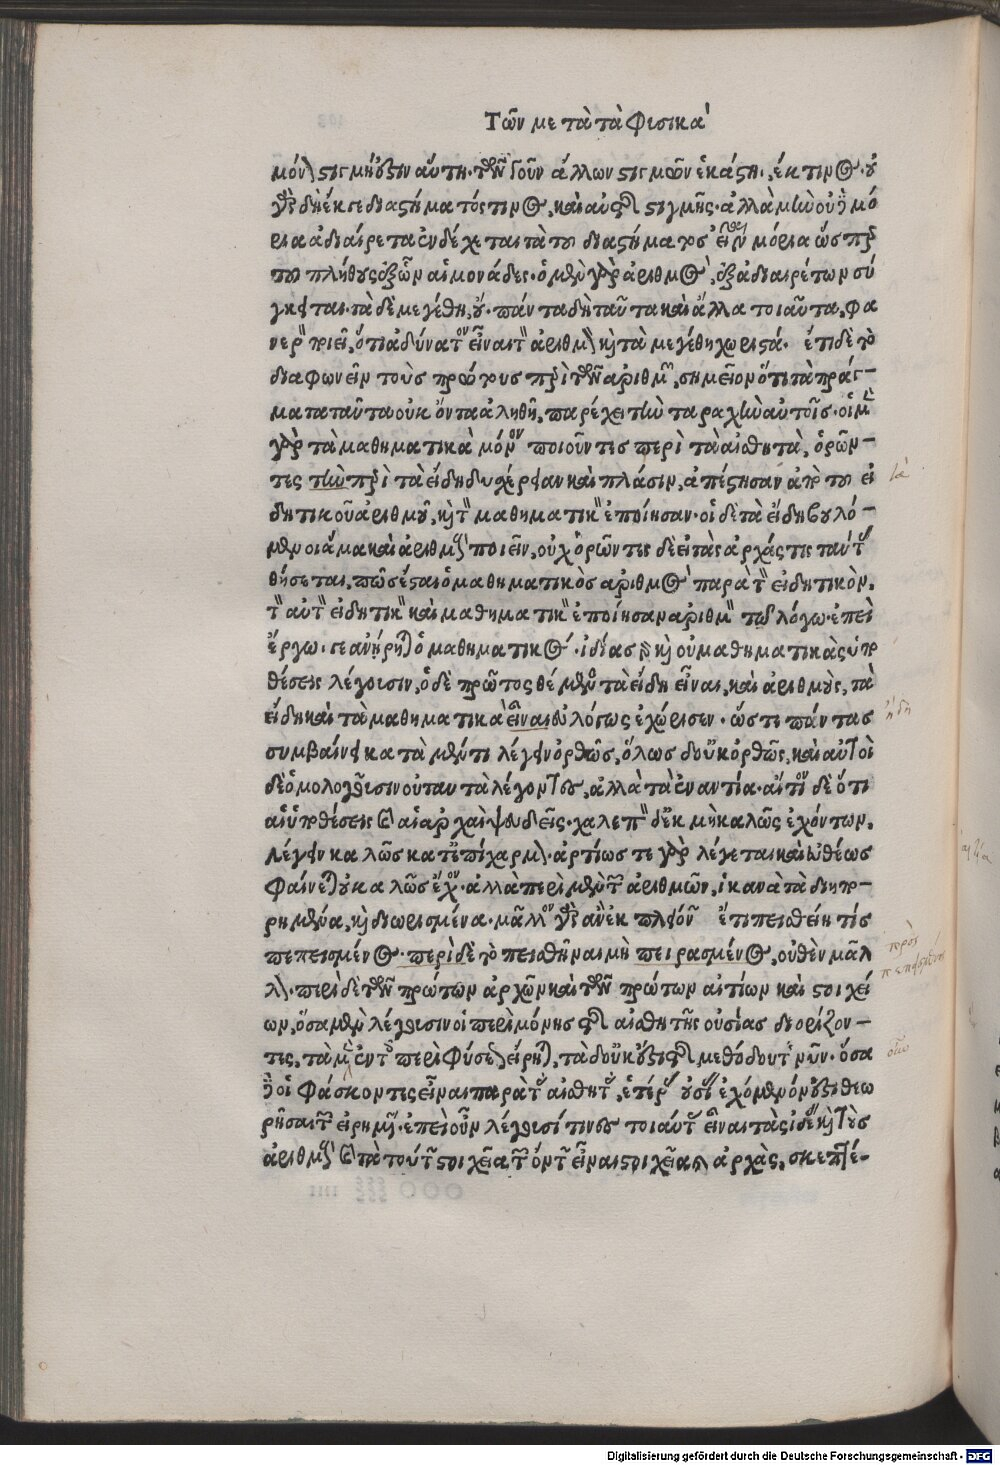 Τῶν μετὰ τὰ Φυσικά
μόνον στιγμή ἐστιν αὕτη. τῶν γοῦν ἄλλων στιγμῶν ἑκάστη, ἐκ τινός. οὐ
γὰρ δὴ ἔκ γε διαστήματός τινος, καὶ αὐτῆς στιγμῆς. ἀλλὰ μὴν οὐδὲ μό
ρια ἀδιαίρετα ἐνδέχεται τὰ τοῦ διαστήματος εἶναι μόρια ὥσπερ
τοῦ πλήθους ἐξ ὧν αἱ μονάδες. ὁ μὲν γὰρ ἀριθμὸς, ἐξ ἀδιαιρέτων σύ
γκειται. τὰ δὲ μεγέθη, οὔ. πάντα δὴ ταῦτα καὶ ἄλλα τοιαῦτα, φα
νερὸν ποιεῖ, ὅτι ἀδύνατον εἶναι τὸν ἀριθμὸν καὶ τὰ μεγέθη χωριστά. ἔτι δὲ τὸ
διαφωνεῖν τοὺς πρώτους περὶ τῶν ἀριθμῶν, σημεῖον ὅτι τὰ πράγ-
ματα ταῦτα οὐκ ὄντα ἀληθῆ, παρέχει τὴν ταραχὴν αὐτοῖς. οἱ μὲν
γὰρ τὰ μαθηματικὰ μόνον ποιοῦντες περὶ τὰ αἰσθητὰ, ὁρῶν-
τες τὴν περὶ τὰ εἴδη δυχέρειαν καὶ πλάσιν, ἀπέστησαν ἀπὸ τοῦ εἰ
δητικοῦ ἀριθμοῦ, καὶ τὸν μαθηματικὸν ἐποίησαν. οἱ δὲ τὰ εἴδη βουλό-
μενοι ἅμα καὶ ἀριθμοὺς ποιεῖν, οὐχ ὁρῶντες δὲ εἰ τὰς ἀρχάς τις ταύτας
θήσεται, πῶς ἔσται ὁ μαθηματικὸς ἀριθμὸς παρὰ τὸν εἰδητικὸν,
τὸν αὐτὸν εἰδητικὸν καὶ μαθηματικὸν ἐποίησαν ἀριθμὸν τῷ λόγῳ. ἐπεὶ
ἔργῳ. γε ἀνῄρηται ὁ μαθηματικός. ἰδίας γὰρ καὶ οὐ μαθηματικὰς ὑπο
θέσεις λέγουσιν, ὁ δὲ πρῶτος θέμενος τὰ εἴδη εἶναι, καὶ ἀριθμοὺς, τὰ
εἴδη καὶ τὰ μαθηματικὰ εἶναι εὐλόγως ἐχώρισεν. ὥστε πάντας
συμβαίνει κατὰ μέν τι λέγειν ὀρθῶς, ὅλως δ' οὐκ ὀρθῶς, καὶ αὐτοὶ
δὲ ὁμολογοῦσιν οὐ ταυτὰ λέγοντες, ἀλλὰ τὰ ἐναντία. αἴτιον δὲ ὅτι
αἱ ὑποθέσεις καὶ αἱ ἀρχαὶ ψευδεῖς. χαλεπὸν δ' ἐκ μὴ καλῶς ἐχόντων,
λέγειν καλῶς κατ' ἐπίχαρμον. ἀρτίως τε γὰρ λέγεται καὶ εὐθέως
φαίνεται οὐ καλῶς ἔχον. ἀλλὰ περὶ μὲν τῶν ἀριθμῶν, ἱκανὰ τὰ διηπο-
ρημένα, καὶ διωρισμένα. μᾶλλον γὰρ ἂν ἐκ πλειόνων ἔτι πεισθείη τίς
πεπεισμένος. περὶ δὲ τὸ πεισθῆναι μὴ πειρασμένος, οὐθὲν μᾶλ
λον. περὶ δὲ τῶν πρώτων ἀρχῶν καὶ τῶν πρώτων αἰτίων καὶ στοιχεί
ων, ὅσα μὲν λέγουσιν οἱ περὶ μόνης τῆς αἰσθητῆς οὐσίας διορίζον-
τες, τὰ μὲν ἐν τοῖς περὶ φύσεως εἴρηται, τὰ δ' οὐκ ἔστι τῆς μεθόδου τῆς νῦν. ὅσα
δὲ οἱ φάσκοντες εἶναι παρὰ τὰς αἰσθητὰς, ἑτέρας οὐσίας ἐχόμενόν ἐστι θεω
ρῆσαι τῶν εἰρημένων. ἐπεὶ οὖν λέγουσί τινες τοιαύτας εἶναι τὰς ἰδέας καὶ τοὺς
ἀριθμοὺς καὶ τὰ τούτων στοιχεῖα τῶν ὄντων εἶναι στοιχεῖα καὶ ἀρχὰς, σκεπτέ-
Digitalisierung gefördert durch die Deutsche Forschungsgemeinschaft - DFG